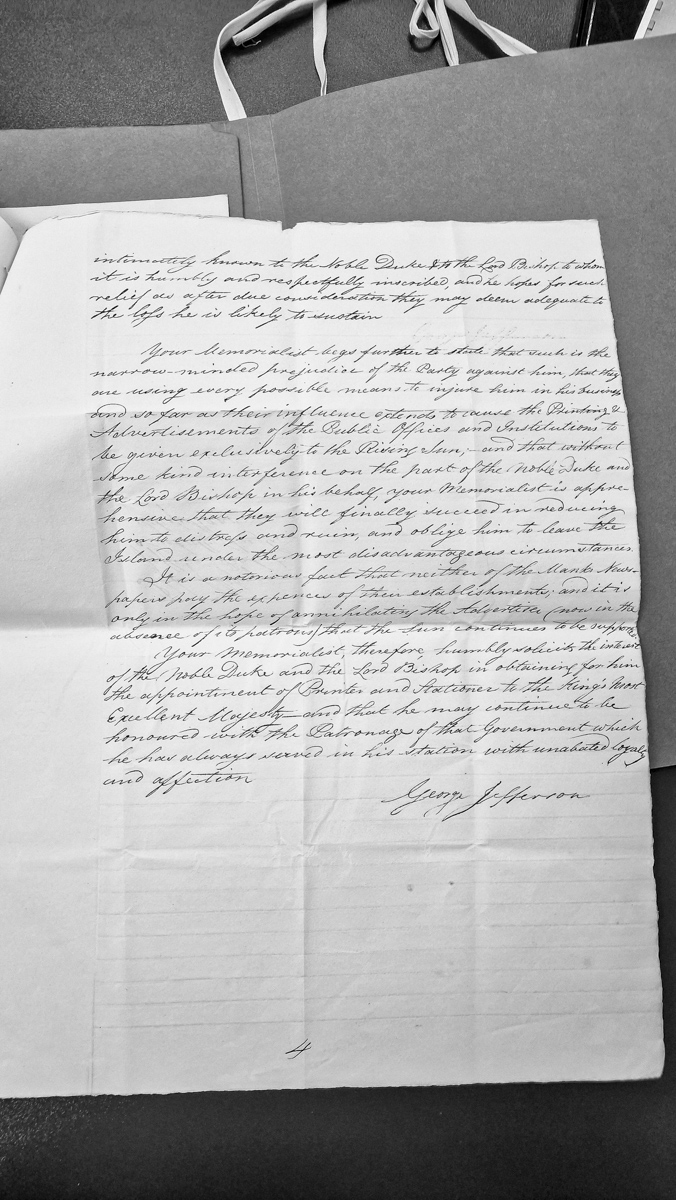 intimately known to the Noble Duke & to the Lord Bishop to whom
it is humbly and respectfully inscribed, and he hopes for such
relief as after due consideration they may deem adequate to
the loſs he is likely to sustain
Your Memorialist begs further to state that such is the
narrow-minded prejudice of the Party against him, that they
are using every possible means to injure him in his business
and so far as their influence extends to cause the Printing &
Advertisements of the Public Offices and Institutions to
be given exclusively to the Rising Sun;- and that without
some kind interference on the part of the Noble Duke and
the Lord Bishop in his behalf, your Memorialist is appre-
hensive that they will finally succeed in reducing
him to distreſs and ruin, and oblige him to leave the
Island under the most disadvantageous circumstances.
It is a notorious fact that neither of the Manks News-
papers pay the expences of their establishments; and it is
only in the hope of annihilating the Advertiser (now in the
absence of its patrons) that the Sun continues to be supported.
Your Memorialist, therefore, humbly solicits the interest
of the Noble Duke and the Lord Bishop in obtaining for him
the appointment of Printer and Stationer to the King's Most
Excellent Majesty - and that he may continue to be
honoured with the Patronage of that Government which
he has always served in his station with unabated loyalty
and affection
George Jefferson
4